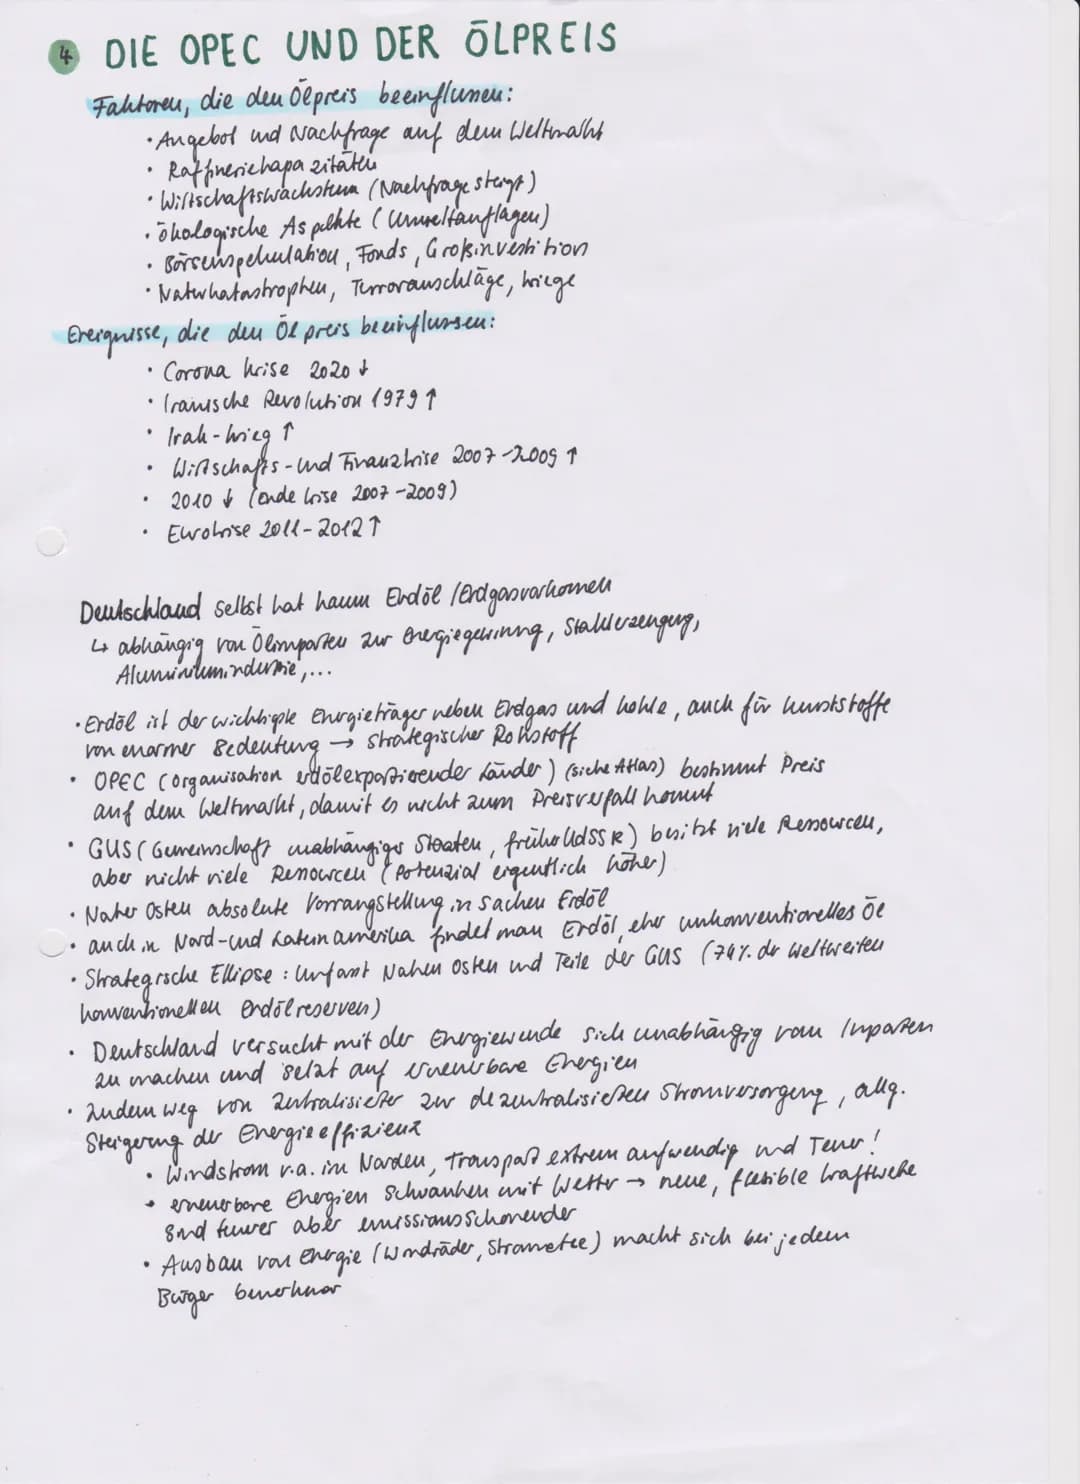 4 DIE OPEC UND DER ÖLPREIS
Faktoren, die den Ölpreis beeinflussen:
· Angebot und Nachfrage auf dem Weltmarkt
· Raffineriekapazitäten
· Wirtschaftswachstum (Nachfrage steigt)
· ökologische Aspekte (Umweltauflagen)
· Börsenspekulation, Fonds, Großinvestition
· Naturkatastrophen, Terroranschläge, Kriege
Ereignisse, die den Ölpreis beeinflussen:
· Corona Krise 2020 ↓
· Iranische Revolution 1979 ↑
· Irak-Krieg ↑
· Wirtschafts- und Finanzkrise 2007-2009 ↑
· 2010 ↓ (Ende Krise 2007-2009)
· Eurokrise 2011-2012 ↑
Deutschland selbst hat kaum Erdöl/Erdgasvorkomen
↳ abhängig von Ölimporten zur Energiegewinnung, Stahlerzeugung,
Aluminiumindustrie,...
· Erdöl ist der wichtigste Energieträger neben Erdgas und Kohle, auch für Kunststoffe
von enormer Bedeutung → strategischer Rohstoff
· OPEC (Organisation erdölexportierender Länder) (siehe Atlas) bestimmt Preis
auf dem Weltmarkt, damit es nicht zum Preisverfall kommt
· GUS (Gemeinschaft unabhängiger Staaten, früher UdSSR) besitzt viele Ressourcen,
aber nicht viele Ressourcen (Potenzial eigentlich höher)
· Naher Osten absolute Vorrangstellung in Sachen Erdöl
· auch in Nord- und Lateinamerika findet man Erdöl, eher unkonventionelles Öl
· Strategische Ellipse: Umfasst Nahen Osten und Teile der GUS (74% der weltweiten
konventionellen Erdölreserven)
· Deutschland versucht mit der Energiewende sich unabhängig von Importen
zu machen und setzt auf erneuerbare Energien
· Zudem weg von zentralisierter zur dezentralisierten Stromversorgung, allg.
Steigerung der Energieeffizienz
· Windstrom v.a. im Norden, Transport extrem aufwendig und Teuer!
· erneuerbare Energien schwanken mit Wetter → neue, flexible Kraftwerke
sind teurer aber emissionsschonender
· Ausbau von Energie (Windräder, Stromnetze) macht sich bei jedem
Bürger bemerkbar